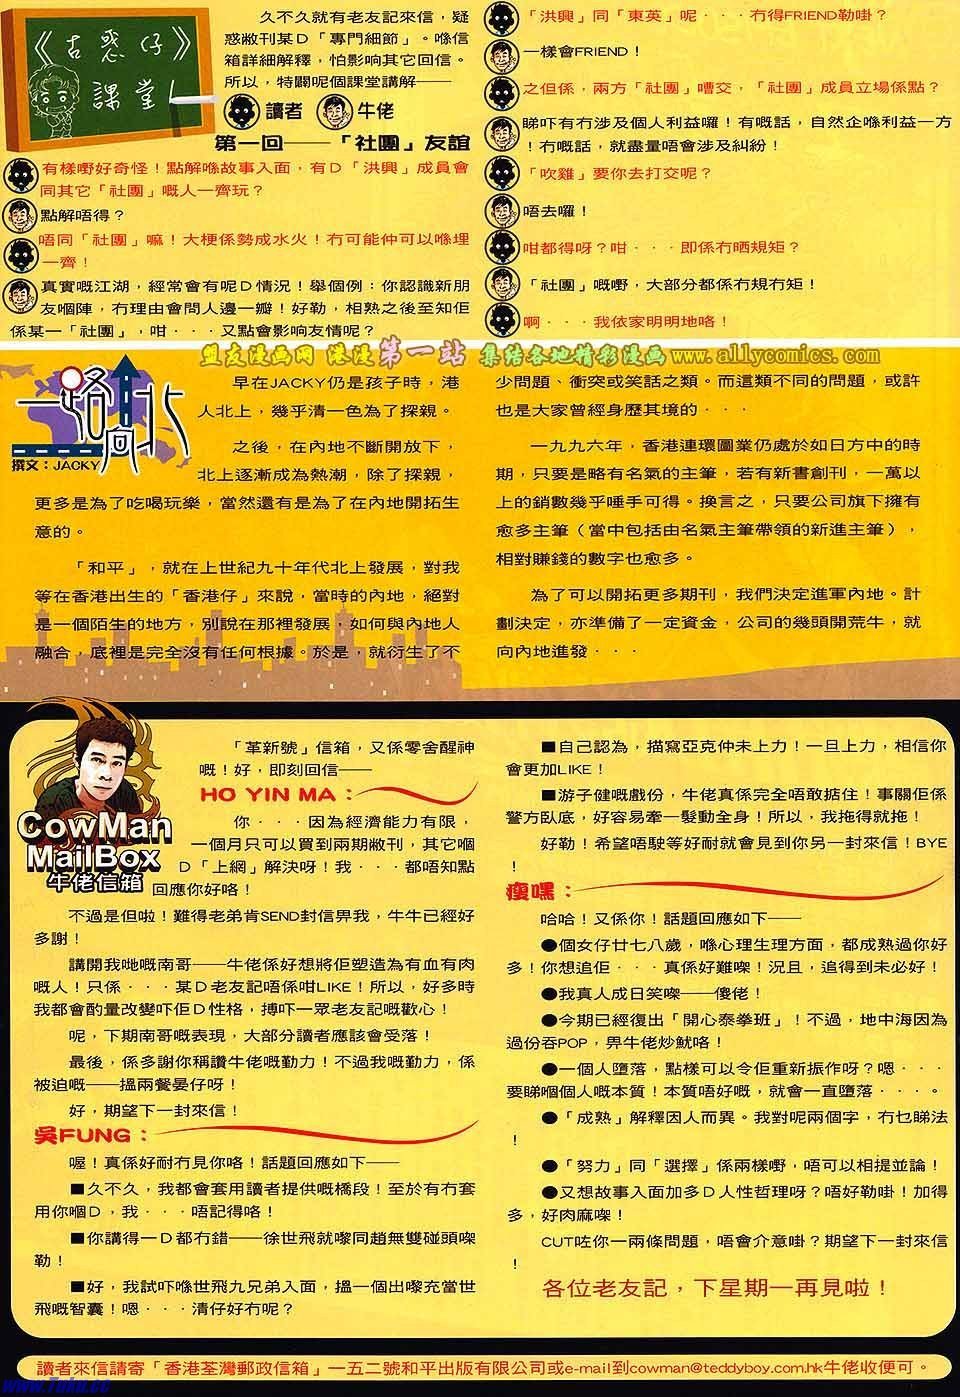 《古惑仔》
課堂!
久不久就有老友記來信，疑
惑敝刊某D「專門細節」。喺信
箱詳細解釋，怕影响其它回信。
所以，特闢呢個課堂講解——
讀者 牛佬
第一回——「社團」友誼
有樣嘢好奇怪！點解喺故事入面，有D「洪興」成員會
同其它「社團」嘅人一齊玩？
點解唔得？
唔同「社團」嘛！大梗係勢成水火！冇可能仲可以喺埋
一齊！
真實嘅江湖，經常會有呢D情況！舉個例：你認識新朋
友嗰陣，冇理由會問人邊一瓣！好勒，相熟之後至知佢
係某一「社團」，咁．．．又點會影响友情呢？
「洪興」同「東英」呢．．．冇得FRIEND勒啩？
一樣會FRIEND！
之但係，兩方「社團」嘈交，「社團」成員立場係點？
睇吓有冇涉及個人利益囉！有嘅話，自然企喺利益一方
！冇嘅話，就盡量唔會涉及糾紛！
「吹雞」要你去打交呢？
唔去囉！
咁都得呀？咁．．．即係冇晒規矩？
「社團」嘅嘢，大部分都係冇規冇矩！
啊．．．我依家明明地咯！
盟友漫画网 港漫第一站 集结各地精彩漫画 www.allycomics.com
一路向北
撰文：JACKY
早在JACKY仍是孩子時，港
人北上，幾乎清一色為了探親。
之後，在內地不斷開放下，
北上逐漸成為熱潮，除了探親，
更多是為了吃喝玩樂，當然還有是為了在內地開拓生
意的。
「和平」，就在上世紀九十年代北上發展，對我
等在香港出生的「香港仔」來說，當時的內地，絕對
是一個陌生的地方，別說在那裡發展，如何與內地人
融合，底裡是完全沒有任何根據。於是，就衍生了不
少問題、衝突或笑話之類。而這類不同的問題，或許
也是大家曾經身歷其境的．．．
一九九六年，香港連環圖業仍處於如日方中的時
期，只要是略有名氣的主筆，若有新書創刊，一萬以
上的銷數幾乎唾手可得。換言之，只要公司旗下擁有
愈多主筆（當中包括由名氣主筆帶領的新進主筆），
相對賺錢的數字也愈多。
為了可以開拓更多期刊，我們決定進軍內地。計
劃決定，亦準備了一定資金，公司的幾頭開荒牛，就
向內地進發．．．
CowMan
MailBox
牛佬信箱
「革新號」信箱，又係零舍醒神
嘅！好，即刻回信——
HO YIN MA：
你．．．因為經濟能力有限，
一個月只可以買到兩期敝刊，其它嗰
D「上網」解決呀！我．．．都唔知點
回應你好咯！
不過是但啦！難得老弟肯SEND封信畀我，牛牛已經好
多謝！
講開我哋嘅南哥——牛佬係好想將佢塑造為有血有肉
嘅人！只係．．．某D老友記唔係咁LIKE！所以，好多時
我都會酌量改變吓佢D性格，搏吓一眾老友記嘅歡心！
呢，下期南哥嘅表現，大部分讀者應該會受落！
最後，係多謝你稱讚牛佬嘅勤力！不過我嘅勤力，係
被迫嘅——搵兩餐晏仔呀！
好，期望下一封來信！
吳FUNG：
喔！真係好耐冇見你咯！話題回應如下——
■久不久，我都會套用讀者提供嘅橋段！至於有冇套
用你嗰D，我．．．唔記得咯！
■你講得一D都冇錯——徐世飛就嚟同趙無雙碰頭㗎
勒！
■好，我試吓喺世飛九兄弟入面，搵一個出嚟充當世
飛嘅智囊！嗯．．．清仔好冇呢？
■自己認為，描寫亞克仲未上力！一旦上力，相信你
會更加LIKE！
■游子健嘅戲份，牛佬真係完全唔敢掂住！事關佢係
警方臥底，好容易牽一髮動全身！所以，我拖得就拖！
好勒！希望唔駛等好耐就會見到你另一封來信！BYE
！
瘦嘿：
哈哈！又係你！話題回應如下——
●個女仔廿七八歲，喺心理生理方面，都成熟過你好
多！你想追佢．．．真係好難㗎！況且，追得到未必好！
●我真人成日笑㗎——傻佬！
●今期已經復出「開心泰拳班」！不過，地中海因為
過份吞POP，畀牛佬炒魷咯！
●一個人墮落，點樣可以令佢重新振作呀？嗯．．．
要睇嗰個人嘅本質！本質唔好嘅，就會一直墮落．．．。
●「成熟」解釋因人而異。我對呢兩個字，冇乜睇法
！
●「努力」同「選擇」係兩樣嘢，唔可以相提並論！
●又想故事入面加多D人性哲理呀？唔好勒啩！加得
多，好肉麻㗎！
CUT咗你一兩條問題，唔會介意啩？期望下一封來信
！
各位老友記，下星期一再見啦！
讀者來信請寄「香港荃灣郵政信箱」一五二號和平出版有限公司或e-mail到cowman@teddyboy.com.hk牛佬收便可。
www.7uku.cc